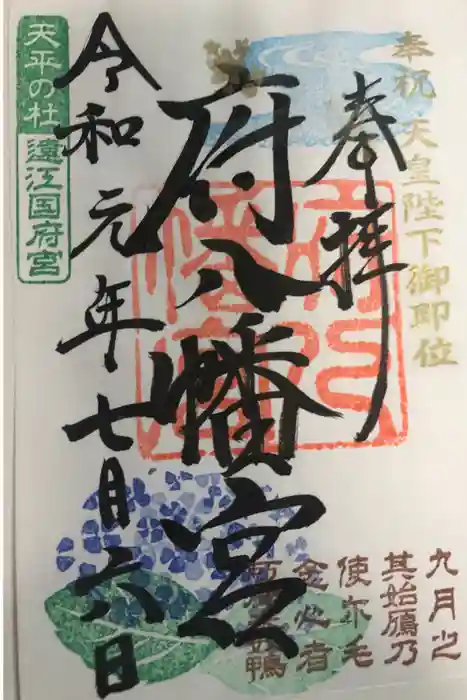 奉祝 天皇陛下御即位
奉拝
府八幡宮
令和元年七月六日
天平の杜
遠江国府宮
府八
幡宮
九月之
其始鴈乃
使尓毛
念心者
鴨